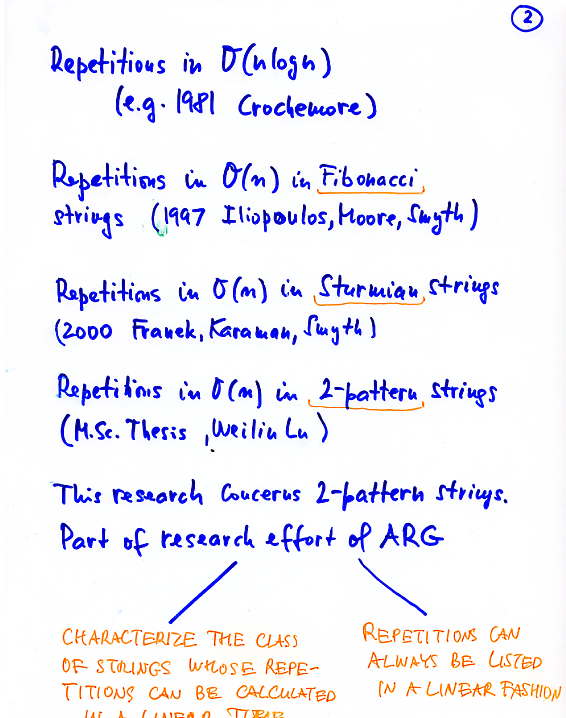 2
Repetitions in O(nlogn)
(e.g. 1981 Crochemore)
Repetitions in O(n) in Fibonacci
strings (1997 Iliopoulos, Moore, Smyth)
Repetitions in O(n) in Sturmian strings
(2000 Franek, Karaman, Smyth)
Repetitions in O(n) in 2-pattern strings
(M.Sc. Thesis, Weilin Lu)
This research concerns 2-pattern strings.
Part of research effort of ARG
CHARACTERIZE THE CLASS
OF STRINGS WHOSE REPE-
TITIONS CAN BE CALCULATED
IN A LINEAR TIME
REPETITIONS CAN
ALWAYS BE LISTED
IN A LINEAR FASHION